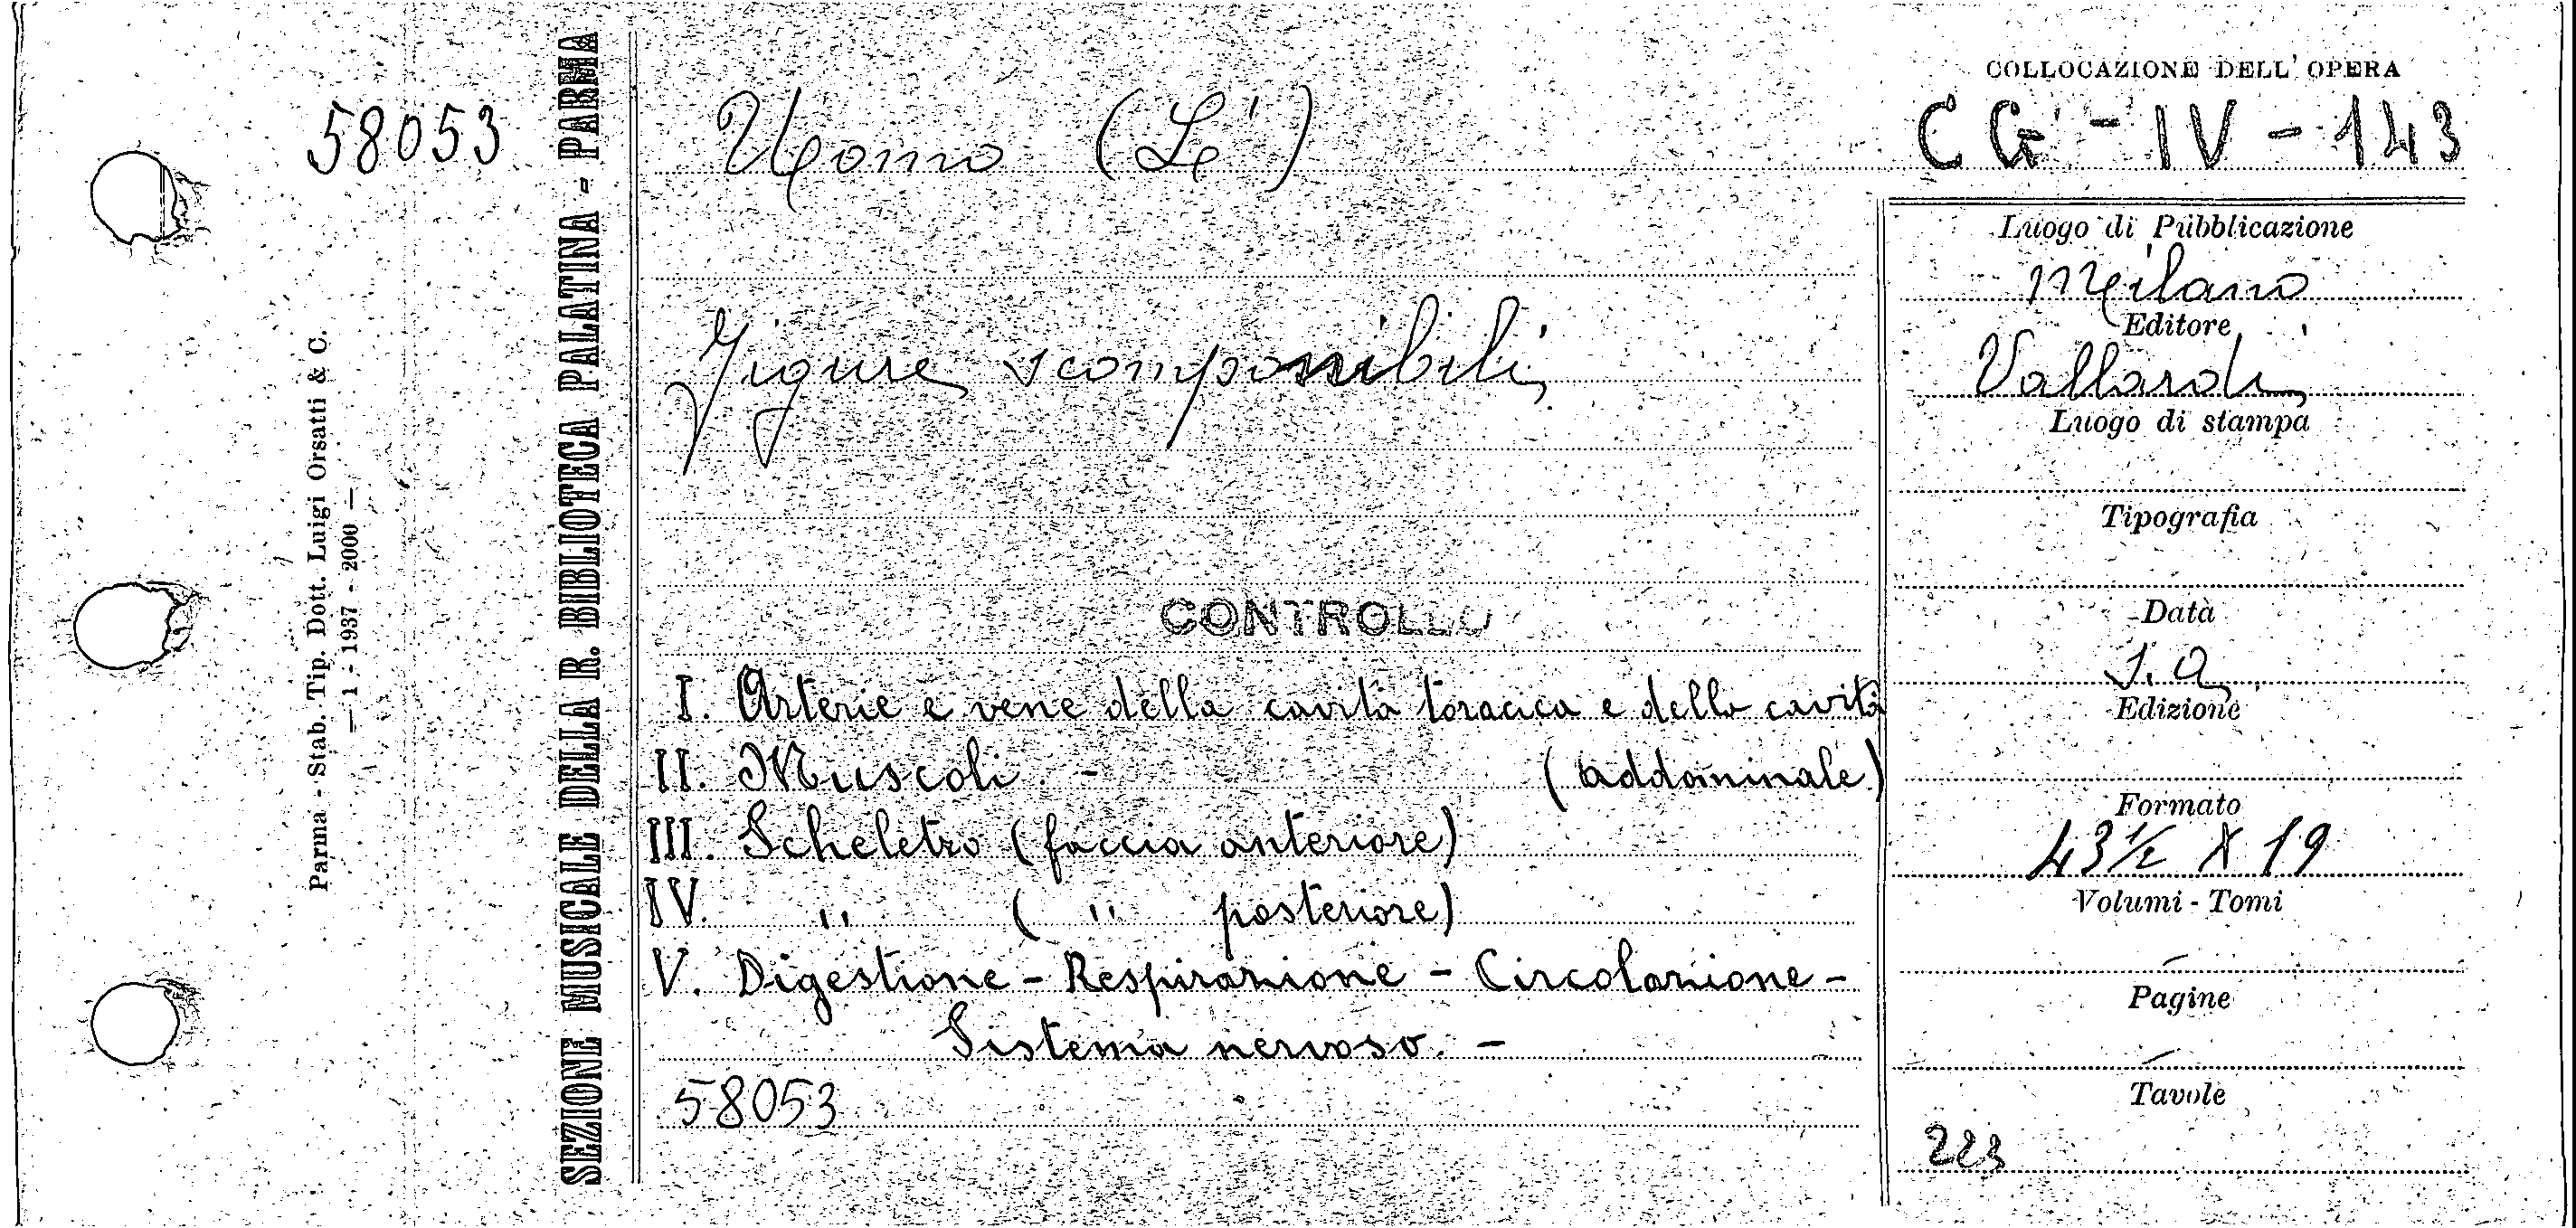 58053
Parma - Stab. Tip. Dott. Luigi Orsatti & C.
— 1 - 1937 - 2000 —
SEZIONE MUSICALE DELLA R. BIBLIOTECA PALATINA - PARMA
Uomo (L')
Figure scomponibili
CONTROLLO
I. Arterie e vene della cavità toracica e della cavità
II. Muscoli - (addominale)
III. Scheletro (faccia anteriore)
IV. " ( " posteriore)
V. Digestione - Respirazione - Circolazione -
Sistema nervoso. -
58053
COLLOCAZIONE DELL' OPERA
CG - IV - 143
Luogo di Pubblicazione
Milano
Editore
Vallardi
Luogo di stampa
Tipografia
Data
S. a.
Edizione
Formato
43½ X 19
Volumi - Tomi
—
Pagine
—
Tavole
223